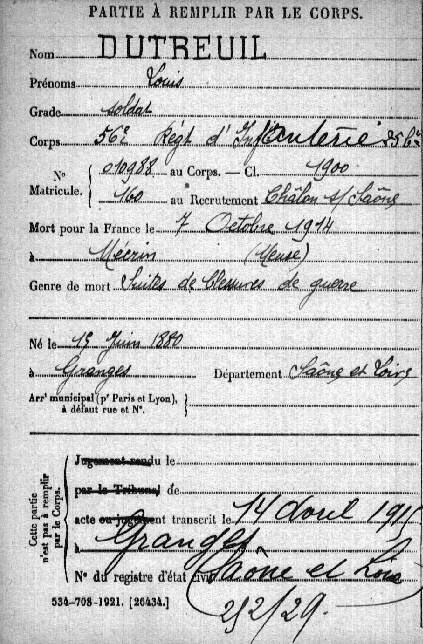 PARTIE À REMPLIR PAR LE CORPS.
Nom DUTREUIL
Prénoms Louis
Grade soldat
Corps 56e Régt d'Infanterie 25 Cie
No Matricule. 010988 au Corps. — Cl. 1900
160 au Recrutement Châlon s/ Saône
Mort pour la France le 7 Octobre 1914
à Mécrin (Meuse)
Genre de mort Suites de blessures de guerre
Né le 15 Juin 1880
à Granges Département Saône et Loire
Arrt municipal (pr Paris et Lyon),
à défaut rue et No.
Cette partie n'est pas à remplir par le Corps.
Jugement rendu le
par le Tribunal de
acte ou jugement transcrit le 14 Avril 1915
à Granges
No du registre d'état civil Saône et Loire
534-708-1921. [26434.] 212/29.